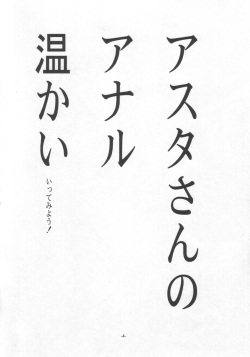 アスタさんの
アナル
温かい
いってみよう！